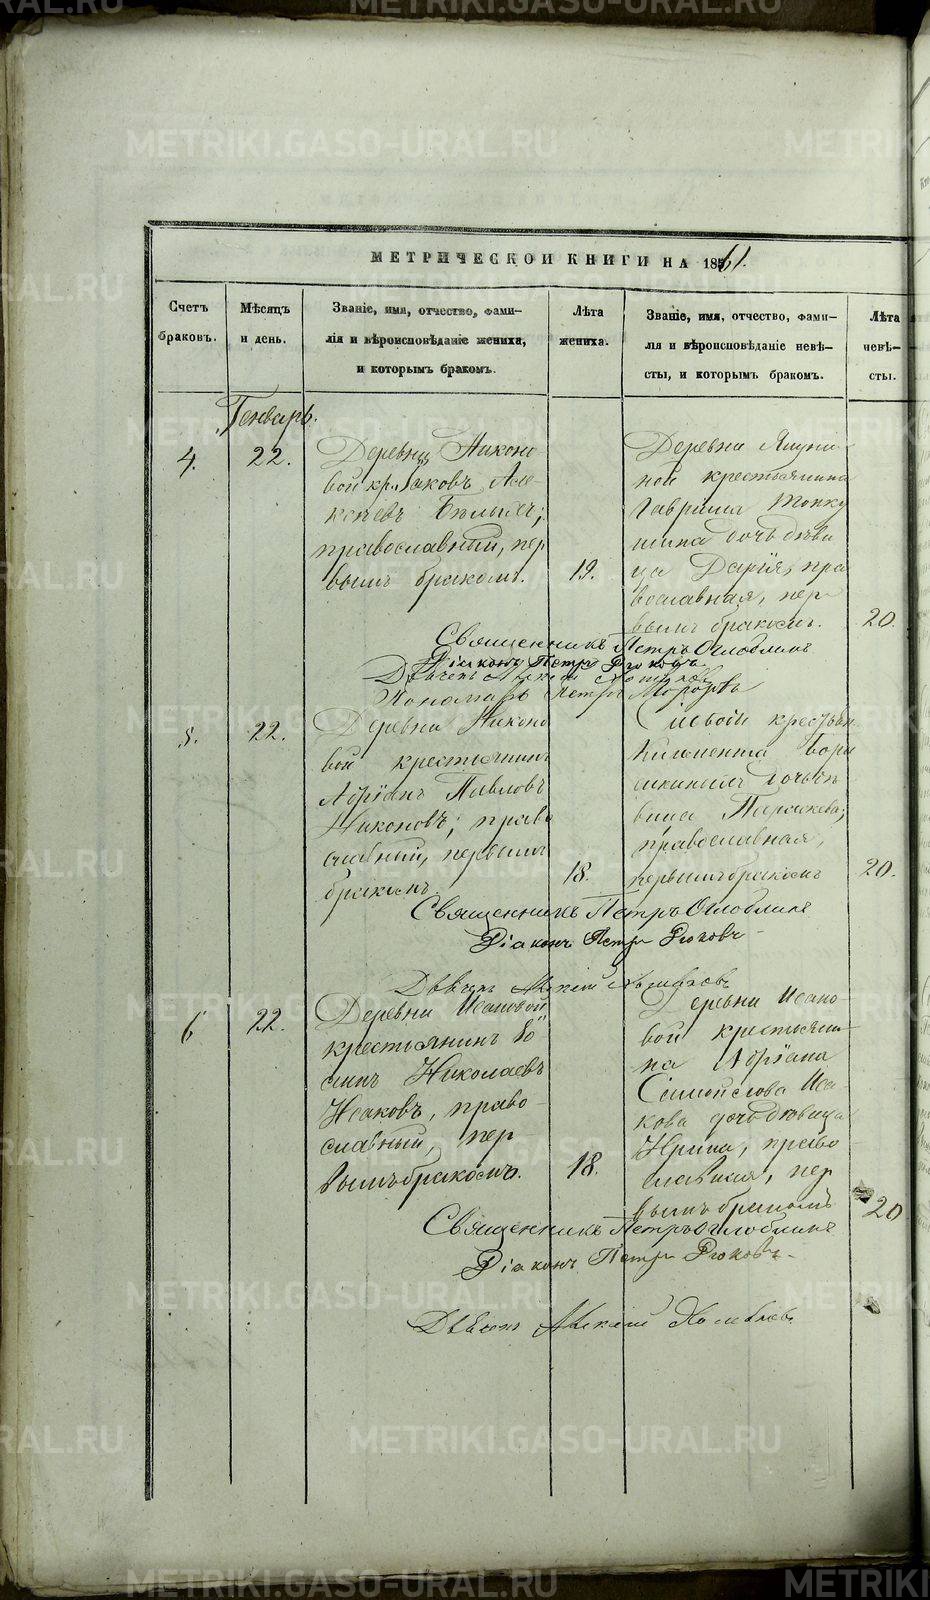 МЕТРИЧЕСКОЙ КНИГИ НА 1861.
Счетъ
браковъ.
Мѣсяцъ
и день.
Званіе, имя, отчество, фами-
лія и вѣроисповѣданіе жениха,
и которымъ бракомъ.
Лѣта
жениха.
Званіе, имя, отчество, фами-
лія и вѣроисповѣданіе невѣ-
сты, и которымъ бракомъ.
Лѣта
невѣ-
сты.
Генварь.
4.
22.
Деревни Никоно
вой кр. Iаковъ Але
ксѣевъ Бѣлыхъ;
православный, пер
вымъ бракомъ.
19.
Деревни
ной крестьянина
Гаврила
дочь дѣви
ца Дарiя, пра
вославная, пер
вымъ бракомъ.
20.
Священникъ Петръ Оглоблинъ
Дiаконъ Петръ
Пономарь Петръ
5.
22.
Деревни Никоно
вой крестьянинъ
Адрiанъ Павловъ
Никоновъ; право
славный, первымъ
бракомъ.
18.
крестьян
дочь дѣ
вица Параскева;
православная,
первымъ бракомъ
20.
Священникъ Петръ Оглоблинъ
Дiаконъ Петръ
6
22.
Деревни Исаковой
крестьянинъ
Николаевъ
Исаковъ, право-
славный, пер
вымъ бракомъ.
18.
Деревни Исако-
вой крестьяни-
на Адрiана
Иса-
кова дочь дѣвица
Ирина, право
славная, пер
вымъ бракомъ
20
Священникъ Петръ Оглоблинъ
Дiаконъ Петръ
METRIKI.GASO-URAL.RU